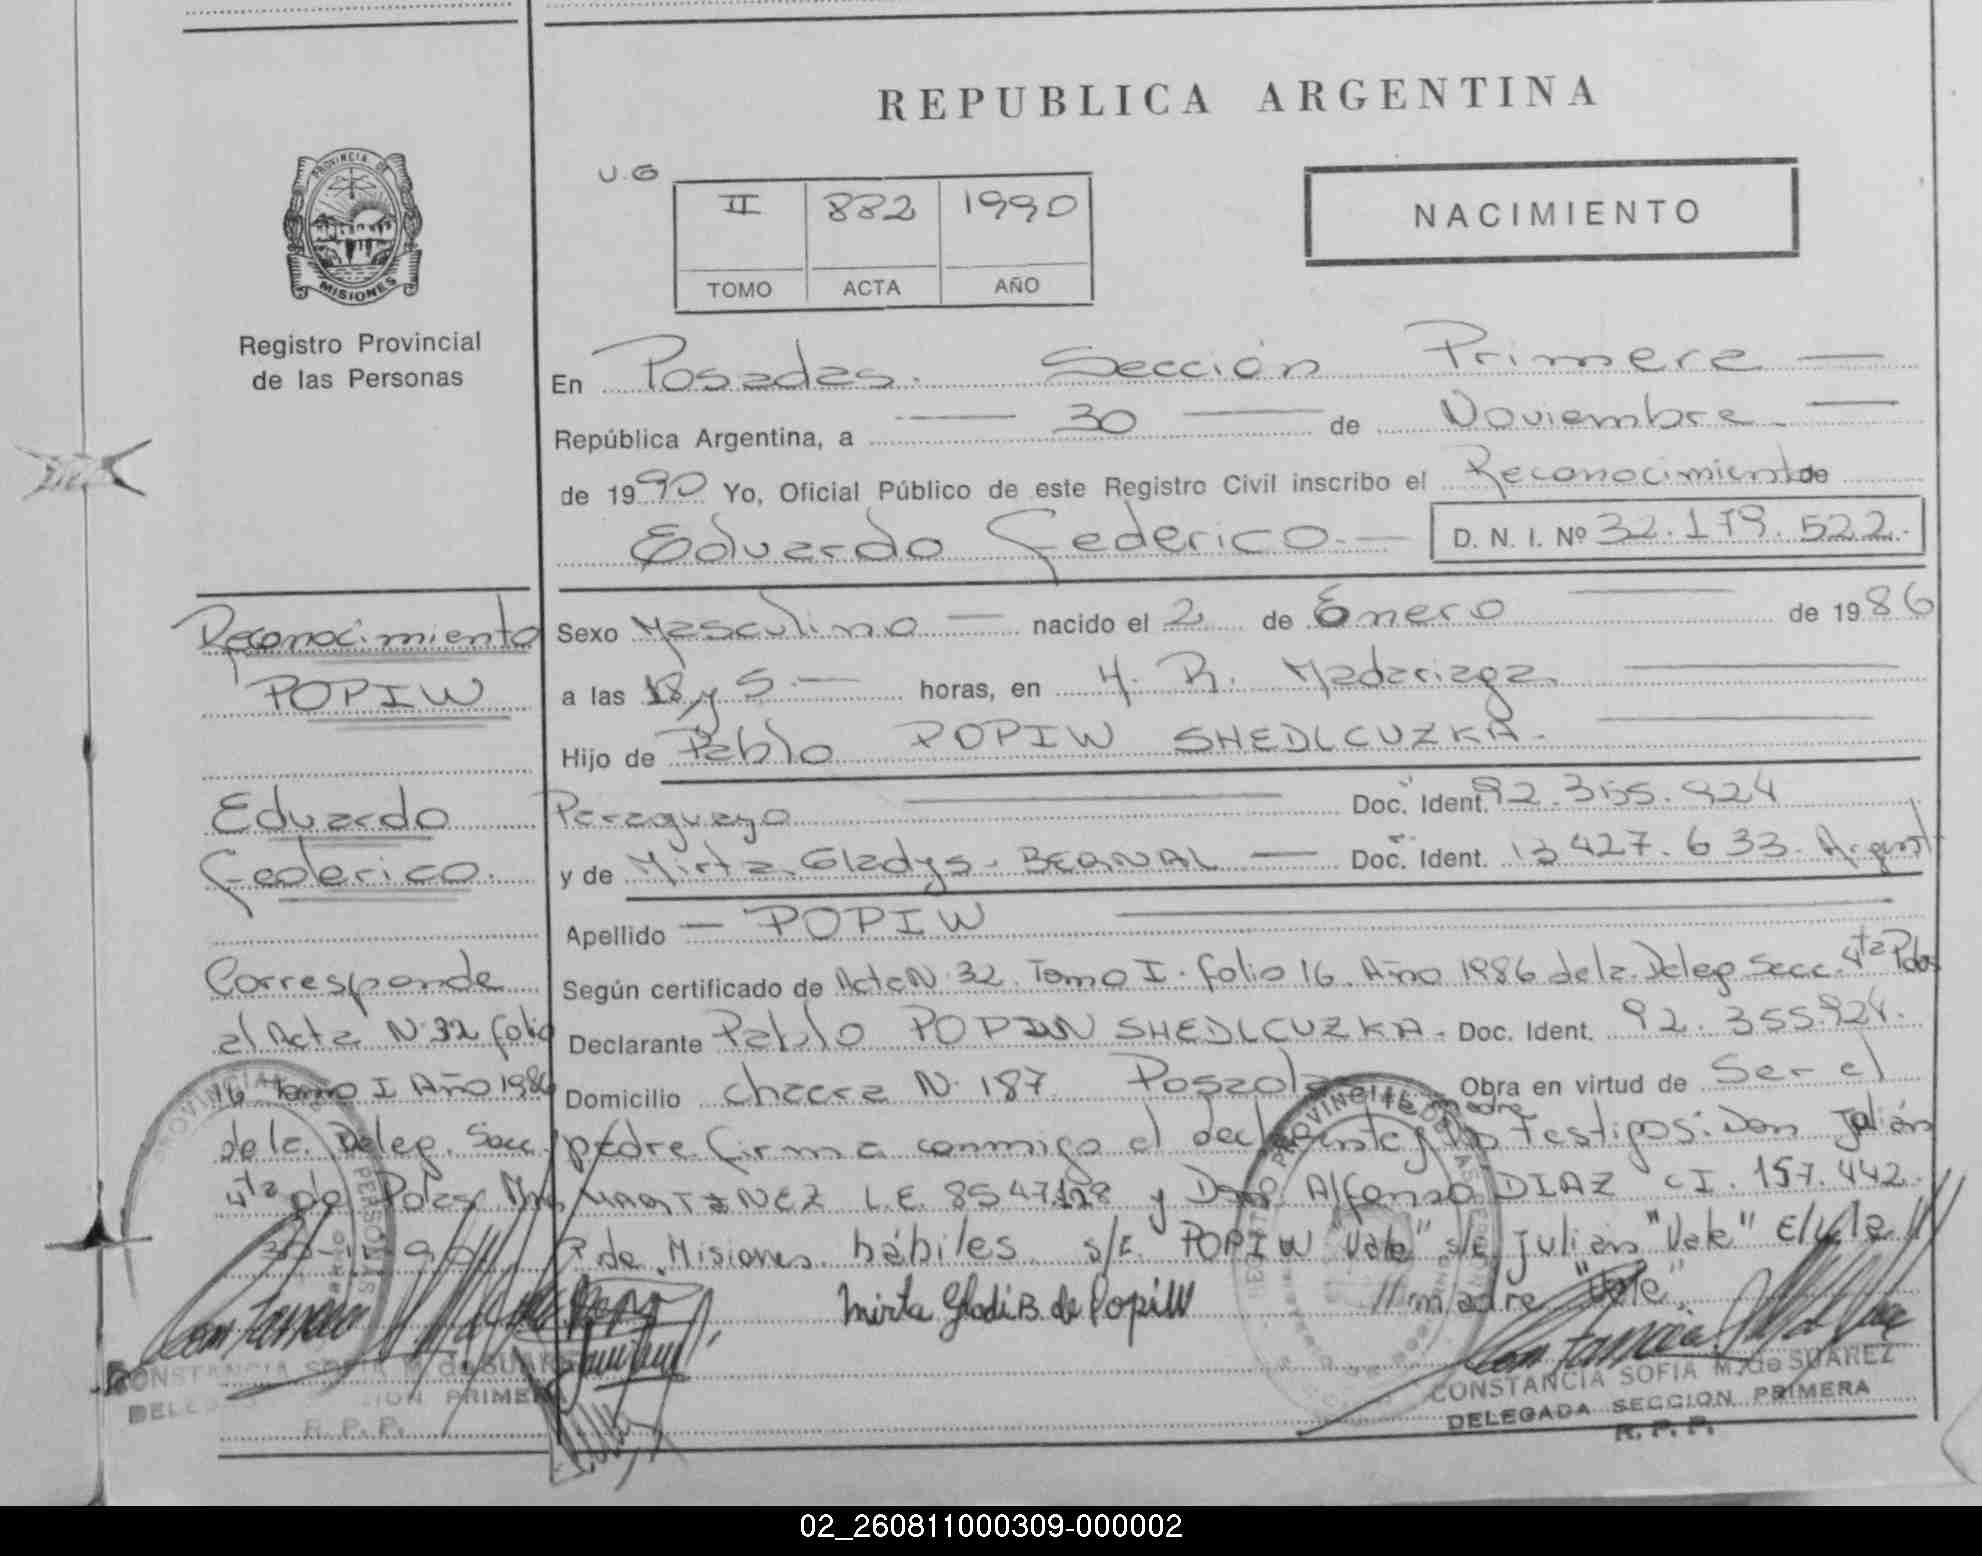 REPUBLICA ARGENTINA
U.G
II 882 1990
TOMO ACTA AÑO
NACIMIENTO
PROVINCIA DE
MISIONES
Registro Provincial
de las Personas
En Posadas. Sección Primera
República Argentina, a 30 de Noviembre
de 1990 Yo, Oficial Público de este Registro Civil inscribo el Reconocimiento de
Eduardo Federico. D. N. I. Nº 32.179.522.
Reconocimiento
POPIW
Eduardo
Federico.
Corresponde
al Acta N 32 folio
16 Tomo I Año 1986
de la Deleg. Secc.
4ta de Pdas.
Sexo Masculino nacido el 2 de Enero de 1986
a las 18 y 5. horas, en H. R. Madariaga.
Hijo de Pablo POPIW SHEDLCUZKA.
Paraguayo Doc. Ident. 92.355.924
y de Mirta Gladys. BERNAL Doc. Ident. 13 427.633. Argent
Apellido POPIW
Según certificado de Acta N 32. Tomo I. folio 16. Año 1986 de la Deleg Secc. 4ta Pdas
Declarante Pablo POPIW SHEDLCUZKA. Doc. Ident. 92.355.924.
Domicilio chacra N. 187 Posadas Obra en virtud de Ser el
padre firma conmigo el declarante y los testigos: Don Julián
madre
MARTINEZ L.E. 8547128 y Don Alfonso DIAZ CI. 157.442.
P. de Misiones hábiles s/E. POPIW "Vale" s/E. Julian "Vale" E/L
madre "Vale"
Mirta Gladi B. de Popiw
CONSTANCIA SOFIA M. de SUAREZ
DELEGADA SECCION PRIMERA
R. P. P.
CONSTANCIA SOFIA M. de SUAREZ
R. P. P.
02_260811000309-000002